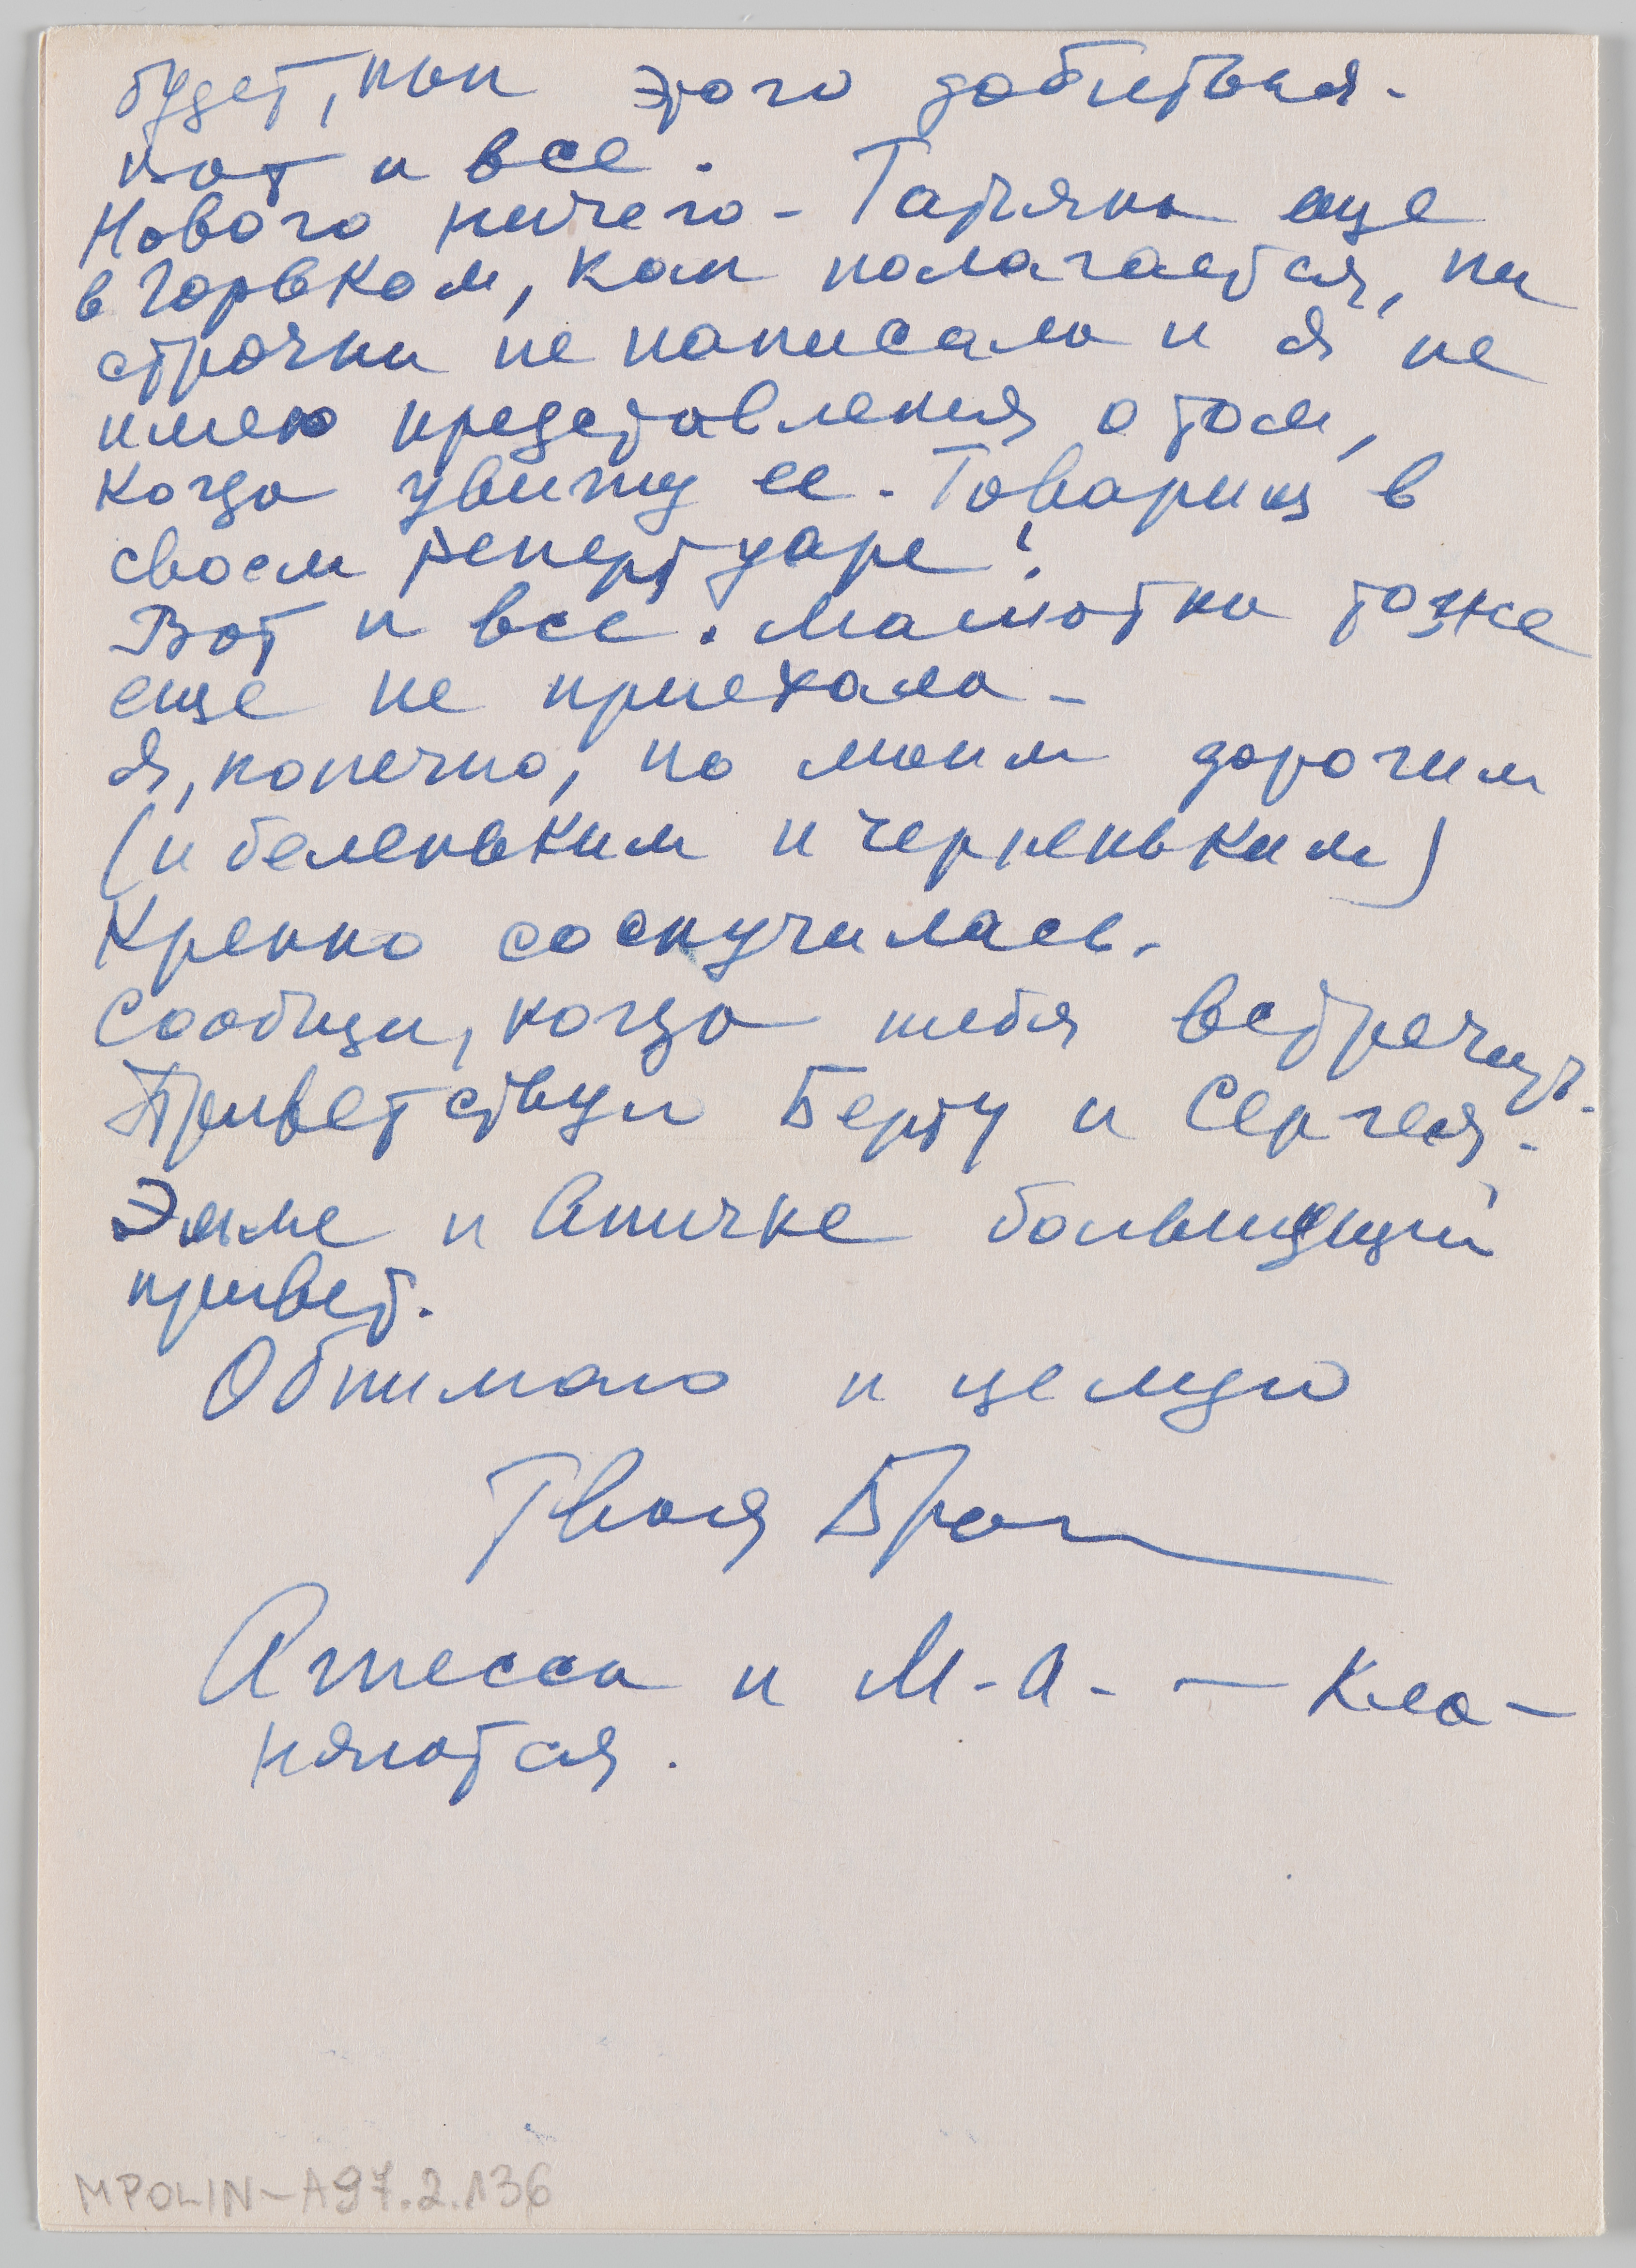 будет, как этого добиться.
Вот и все.
Нового ничего - Татьяна еще
в Горьком, как полагается, ни
строчки не написала и я не
имею представления о том,
когда увижу ее. Товарищ в
своем репертуаре!
Вот и все. Мамотка тоже
еще не приехала -
Я, конечно, по моим дорогим
(и беленьким и черненьким)
Крепко соскучилась.
Сообщи, когда тебя встречать.
Приветствую Берту и Сергея.
Эмме и Аничке большущий
привет.
Обнимаю и целую
Твоя Бро
Атесса и М.А. - Кла-
няются.
MPOLIN-A97.2.136